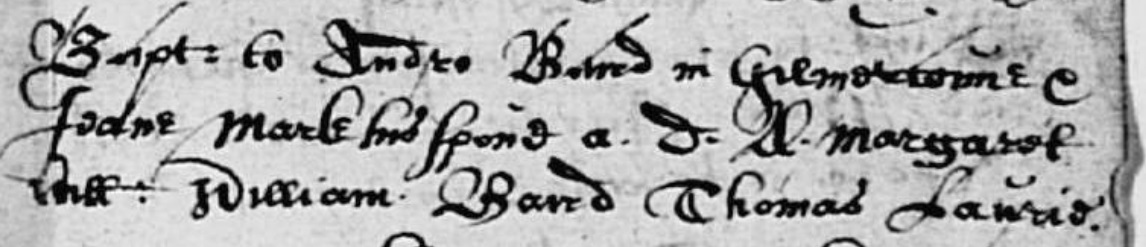 Bapt: to Andro Band in Gilmertoune &
Jeane Mark his spous a. d. N. margaret
witt: William Band Thomas Laurie.